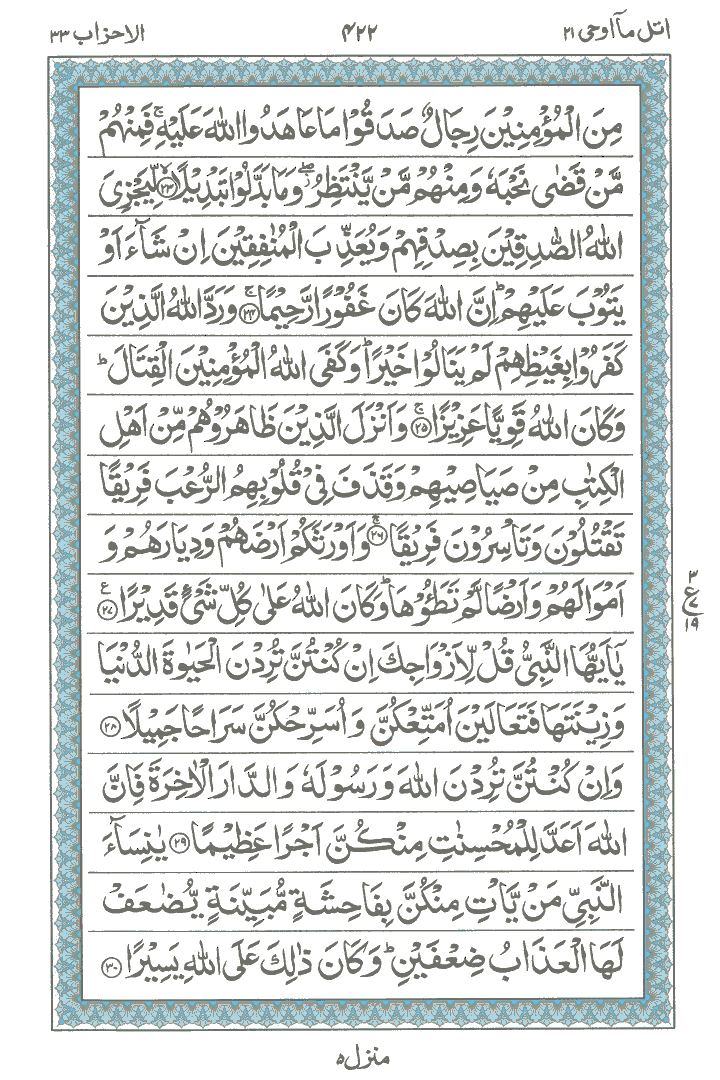 اتل مآ اوحی ۲۱
۴۲۲
الاحزاب ۳۳
مِنَ الْمُؤْمِنِيْنَ رِجَالٌ صَدَقُوْا مَا عَاهَدُوا اللّٰهَ عَلَيْهِ ۚ فَمِنْهُمْ
مَّنْ قَضٰى نَحْبَهٗ وَمِنْهُمْ مَّنْ يَّنْتَظِرُ ۖ وَمَا بَدَّلُوْا تَبْدِيْلًا ۙ﴿۲۳﴾ لِّيَجْزِيَ
اللّٰهُ الصّٰدِقِيْنَ بِصِدْقِهِمْ وَيُعَذِّبَ الْمُنٰفِقِيْنَ اِنْ شَآءَ اَوْ
يَتُوْبَ عَلَيْهِمْ ؕ اِنَّ اللّٰهَ كَانَ غَفُوْرًا رَّحِيْمًا ۚ﴿۲۴﴾ وَرَدَّ اللّٰهُ الَّذِيْنَ
كَفَرُوْا بِغَيْظِهِمْ لَمْ يَنَالُوْا خَيْرًا ؕ وَكَفَى اللّٰهُ الْمُؤْمِنِيْنَ الْقِتَالَ ؕ
وَكَانَ اللّٰهُ قَوِيًّا عَزِيْزًا ۚ﴿۲۵﴾ وَاَنْزَلَ الَّذِيْنَ ظَاهَرُوْهُمْ مِّنْ اَهْلِ
الْكِتٰبِ مِنْ صَيَاصِيْهِمْ وَقَذَفَ فِيْ قُلُوْبِهِمُ الرُّعْبَ فَرِيْقًا
تَقْتُلُوْنَ وَتَاْسِرُوْنَ فَرِيْقًا ۚ﴿۲۶﴾ وَاَوْرَثَكُمْ اَرْضَهُمْ وَدِيَارَهُمْ وَ
اَمْوَالَهُمْ وَاَرْضًا لَّمْ تَطَـُٔوْهَا ؕ وَكَانَ اللّٰهُ عَلٰى كُلِّ شَيْءٍ قَدِيْرًا ﴿۲۷﴾ ع
۳
ع
۷
۱۹
يٰۤاَيُّهَا النَّبِيُّ قُلْ لِّاَزْوَاجِكَ اِنْ كُنْتُنَّ تُرِدْنَ الْحَيٰوةَ الدُّنْيَا
وَزِيْنَتَهَا فَتَعَالَيْنَ اُمَتِّعْكُنَّ وَاُسَرِّحْكُنَّ سَرَاحًا جَمِيْلًا ﴿۲۸﴾
وَاِنْ كُنْتُنَّ تُرِدْنَ اللّٰهَ وَرَسُوْلَهٗ وَالدَّارَ الْاٰخِرَةَ فَاِنَّ
اللّٰهَ اَعَدَّ لِلْمُحْسِنٰتِ مِنْكُنَّ اَجْرًا عَظِيْمًا ﴿۲۹﴾ يٰنِسَآءَ
النَّبِيِّ مَنْ يَّاْتِ مِنْكُنَّ بِفَاحِشَةٍ مُّبَيِّنَةٍ يُّضٰعَفْ
لَهَا الْعَذَابُ ضِعْفَيْنِ ؕ وَكَانَ ذٰلِكَ عَلَى اللّٰهِ يَسِيْرًا ﴿۳۰﴾
منزل ۵